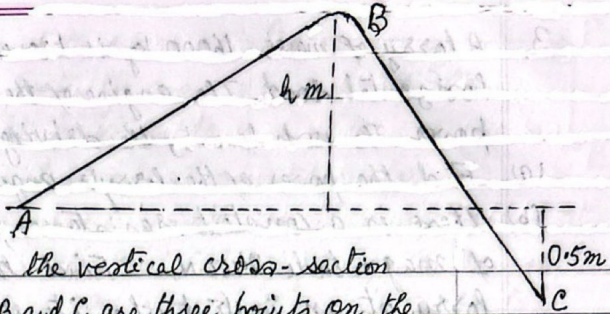 B
h m
A
the vertical cross-section
0.5m
B and C are three points on the
C